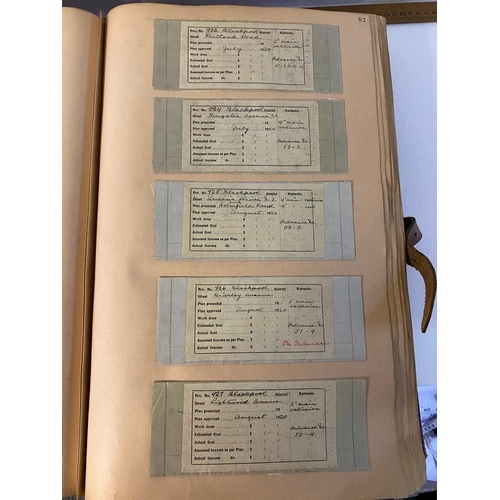 57
Pro. No. 423 Blackpool District Remarks.
Street Portland Road 3" main
Plan presented 19 extension
Plan approved July 1920
Work done £
Estimated Cost £ Ordnance No
Actual Cost £
Assumed Income as per Plan £
Actual Income do. £
Pro. No. 424 Blackpool District Remarks.
Street Avenue
Plan presented 19 4" main
Plan approved July 1920 extension
Work done £
Estimated Cost £ Ordnance No
Actual Cost £
Assumed Income as per Plan £
Actual Income do. £
Pro. No. 425 Blackpool District Remarks.
Street Queens Drive 4" main extension
Plan presented Road 4"
Plan approved August 1920
Work done £
Estimated Cost £ Ordnance No
Actual Cost £
Assumed Income as per Plan £
Actual Income do. £
Pro. No. 426 Blackpool District Remarks.
Street Avenue
Plan presented 19 3" main
Plan approved August 1920 extension
Work done £
Estimated Cost £ Ordnance No
Actual Cost £ 51-9
Assumed Income as per Plan £
Actual Income do. £
Pro. No. 427 Blackpool District Remarks.
Street Lightwood Avenue 3" main
Plan presented 19 extension
Plan approved August 1920
Work done £
Estimated Cost £ Ordnance No
Actual Cost £
Assumed Income as per Plan £
Actual Income do. £